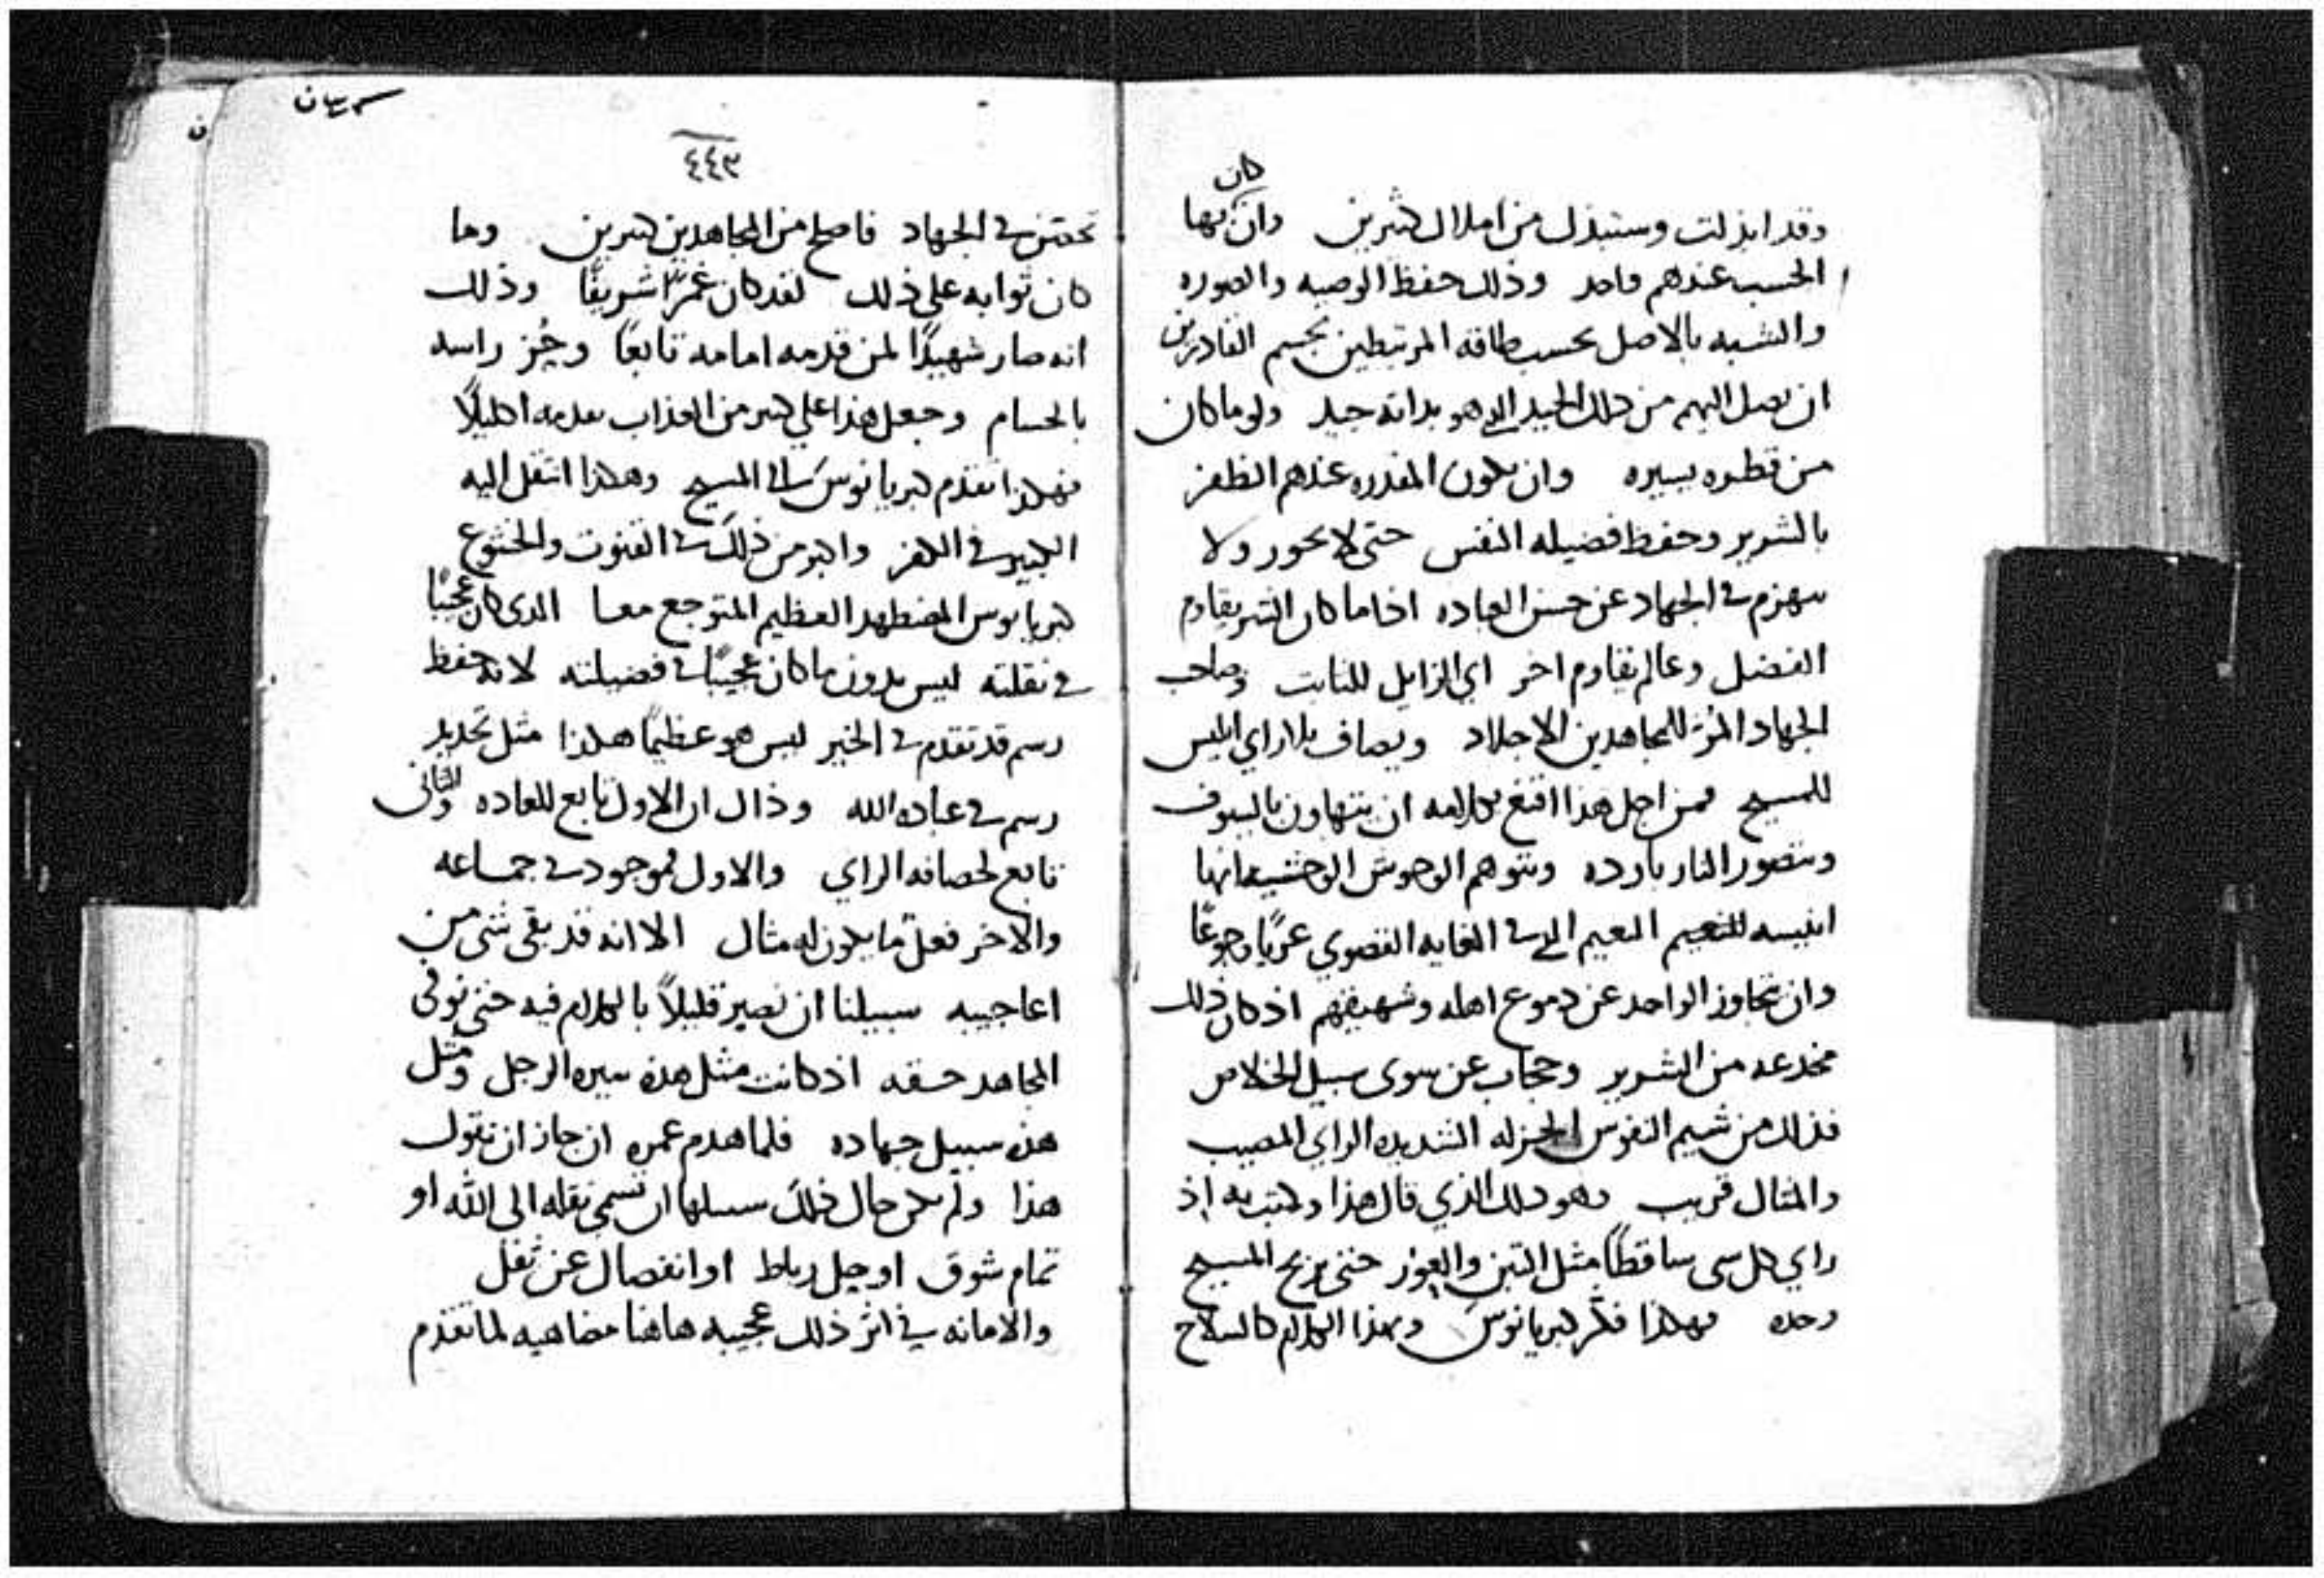 كان
وقد ابذلت وستبذل من املال كثيرين وان بها
الحسب عندهم واحد وذلك حفظ الوصيه والصوره
والشبه بالاصل بحسب طاقه المرتبطين بجسم القادرين
ان يصل اليهم من ذلك الجيد الذي هو بذاته جيد ولو ما كان
من قطره يسيره وان يكون المقدره عندهم الظفر
بالشرير وحفظ فضيله النفس حتى لا يخور ولا
ينهزم في الجهاد عن حسن العباده اذا ما كان الشر يقاوم
الفضل وعالم يقاوم اخر اي الزايل للثابت وصاحب
الجهاد المر للمجاهدين الاجلاد ويصاف بلاراي ابليس
للمسيح فمن اجل هذا اقنع بكلامه ان يتهاون بالسيوف
ويتصور النار بارده ويتوهم الوحوش الوحشيه انها
انيسه للنعيم النعيم الذي في الغايه القصوي عريا وجوعا
وان يتجاوز الواحد عن دموع اهله وشهيقهم اذ كان ذلك
مخدعه من الشرير وحجاب عن سوى سبيل الخلاص
فذلك من شيم النفوس الجزله الشديده الراي المصيب
والمثال قريب وهو ذلك الذي قال هذا وكتب به اذ
راي كل شي ساقطا مثل التبن والعوز حتى يربح المسيح
وحده فهكذا فكر كبريانوس وبهذا الكلام كالسلاح
كبريان
٤٤٣
في الجهاد فاصلح من المجاهدين كثيرين وما
كان ثوابه على ذلك لقد كان شريفا وذلك
انه صار شهيدا لمن قدمه امامه تابعا وجز راسه
بالحسام وجعل هذا علي كثير من العذاب تقدمه اكليلا
فهكذا تقدم كبريانوس الى المسيح وهكذا انتقل اليه
الكبير في الكفر واكبر من ذلك في القنوت والخشوع
كبريانوس المضطهد العظيم المتوجع معا الذي كان عجيبا
في نقلته ليس بدون ما كان عجيبا في فضيلته لانه حفظ
رسم قد تقدم في الخير ليس هو عظيما هكذا مثل تجديد
رسم في عباده الله وذال ان الاول تابع للعاده والثاني
تابع لحصافه الراي والاول موجود في جماعه
والاخر فعل ما يكون له مثال الا انه قد بقى شى من
اعاجيبه سبيلنا ان نصير قليلا بالكلام فيه حتى نوفى
المجاهد حقه اذ كانت مثل هذه سيره الرجل ومثل
هذه سبيل جهاده فلما هدم عمره ان جاز ان نقول
هذا ولم يكن حال ذلك سبيلها ان نسمى نقله الى الله او
تمام شوق او حل رباط او انفصال عن ثقل
والامانه في اثر ذلك عجيبه هاهنا مضاهيه لما تقدم